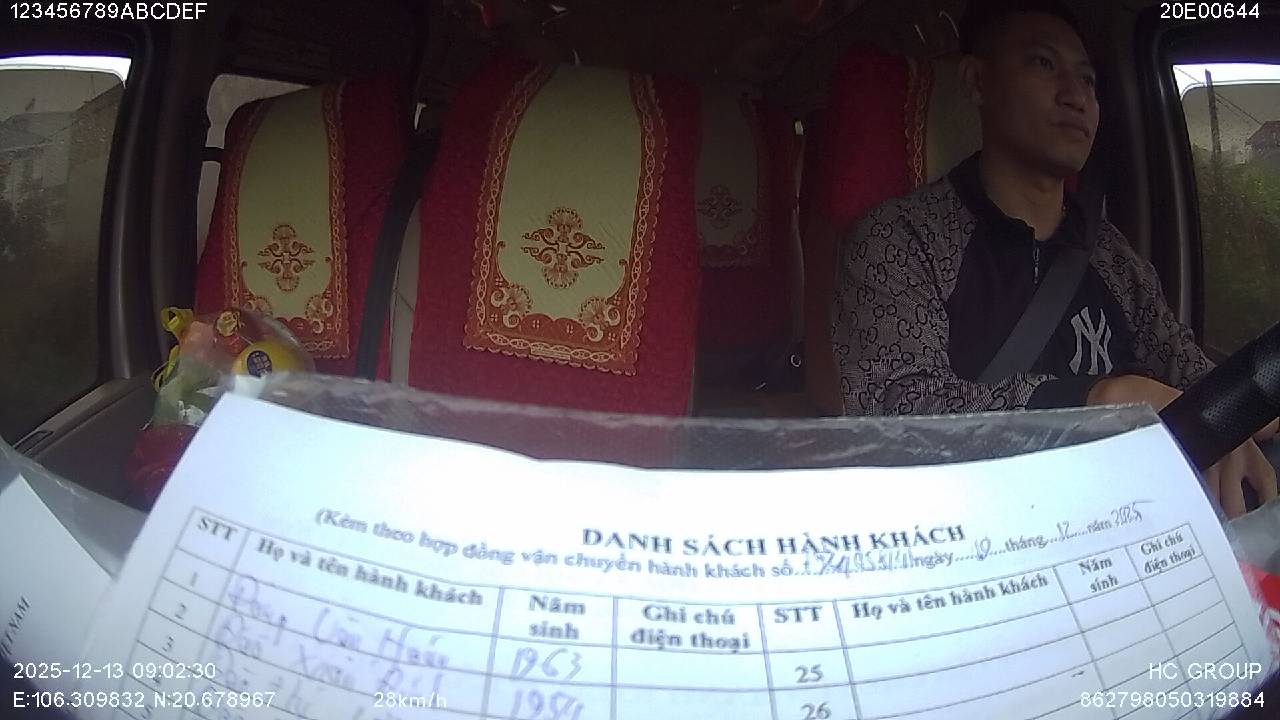 123456789ABCDEF
20E00644
NY
DANH SÁCH HÀNH KHÁCH
(Kèm theo hợp đồng vận chuyển hành khách số ngày 10 tháng 12 năm 2025
STT Họ và tên hành khách Năm sinh Ghi chú điện thoại STT Họ và tên hành khách Năm sinh Ghi chú điện thoại
1 Văn 1963 25
2 Xuân 26
3
2025-12-13 09:02:30
HC GROUP
E:106.309832 N:20.678967
28km/h
862798050319884